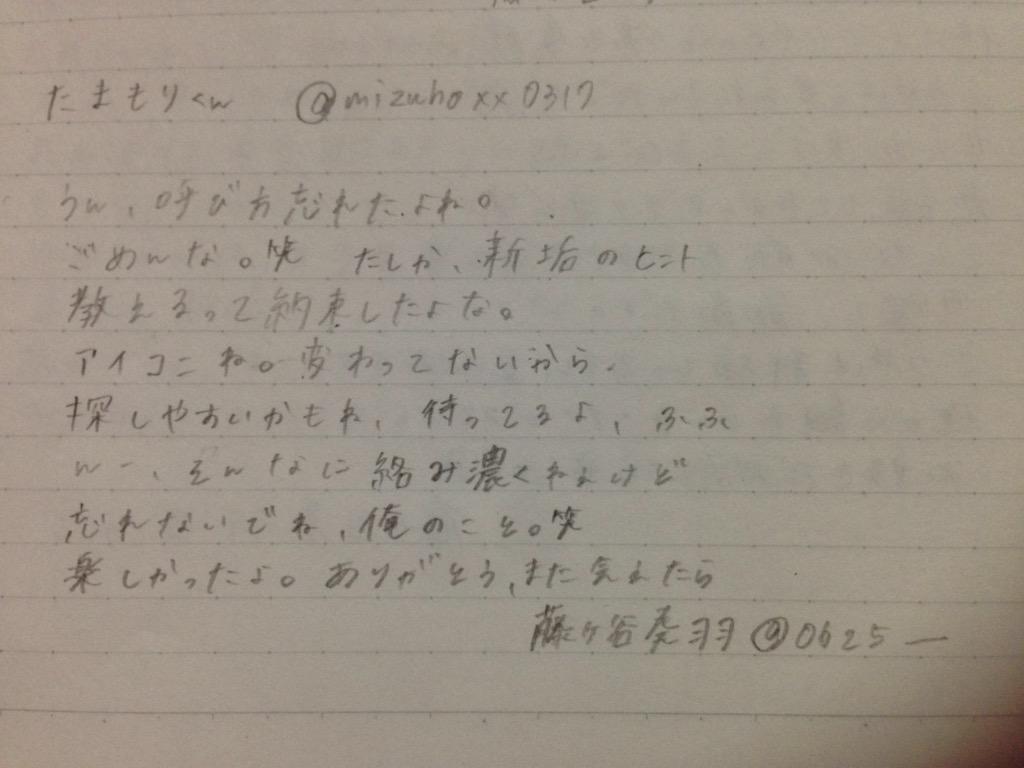 たまもりくん @mizuhoxx0317
うん、呼び方忘れたよね。
ごめんな。笑 たしか、新垢のヒント
教えるって約束したよな。
アイコンね。変わってないから、
探しやすいかもね、待ってるよ、ふふ
んー、そんなに絡み濃くねぇけど
忘れないでね、俺のこと。笑
楽しかったよ。ありがとう、また会えたら
藤ヶ谷 @0625_